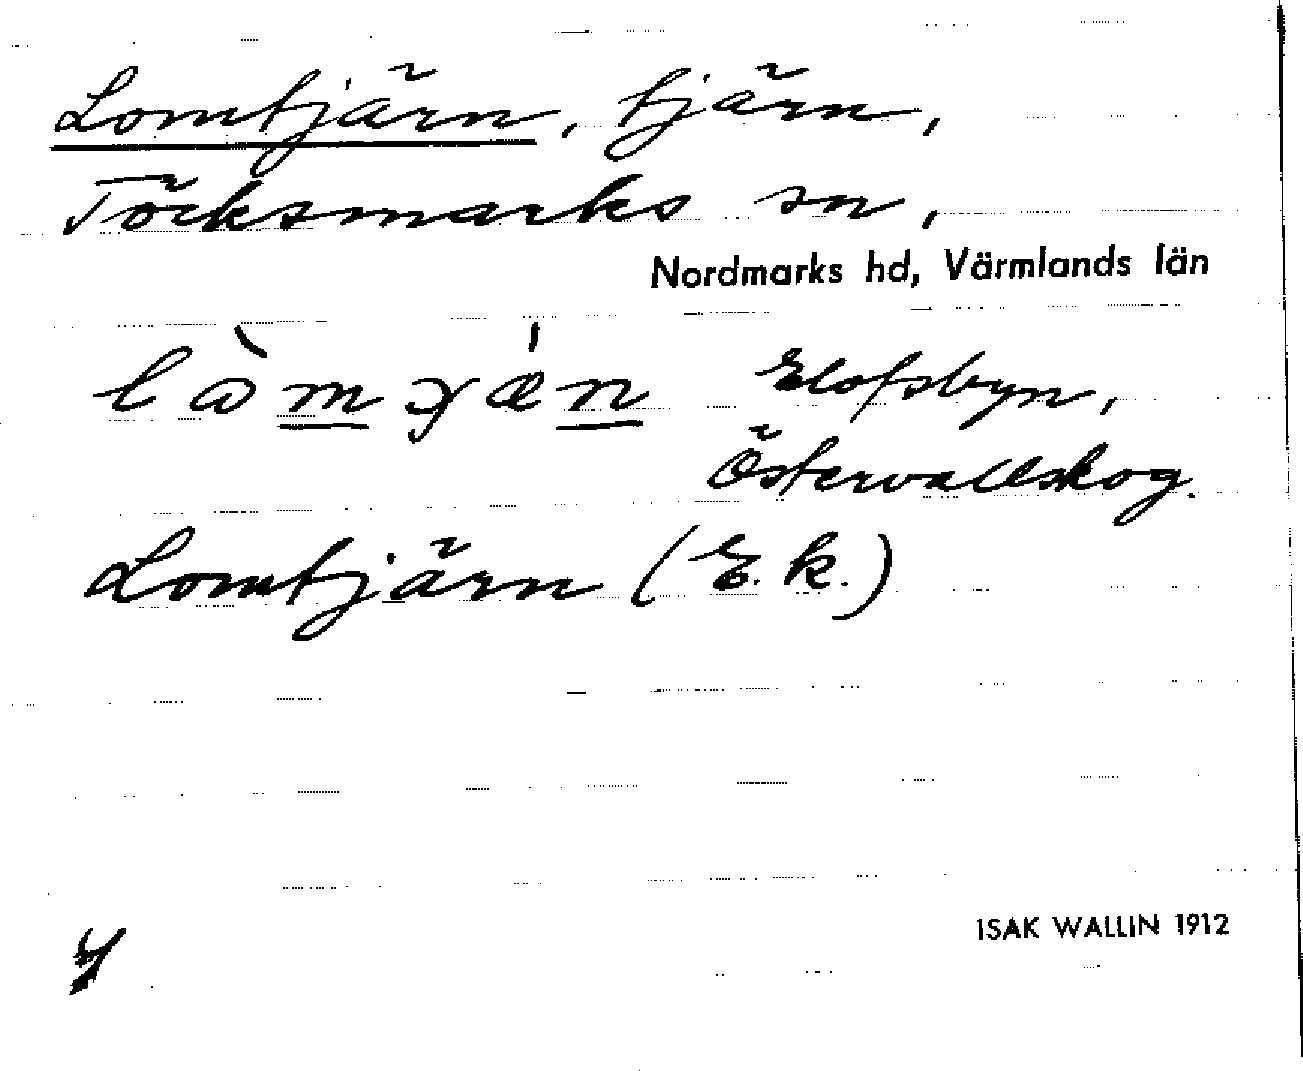 Lomtjärn, tjärn,
Töcksmarks sn,
Nordmarks hd, Värmlands län
Elofsbyn,
Östervallskog.
Lomtjärn (E. k.)
ISAK WALLIN 1912